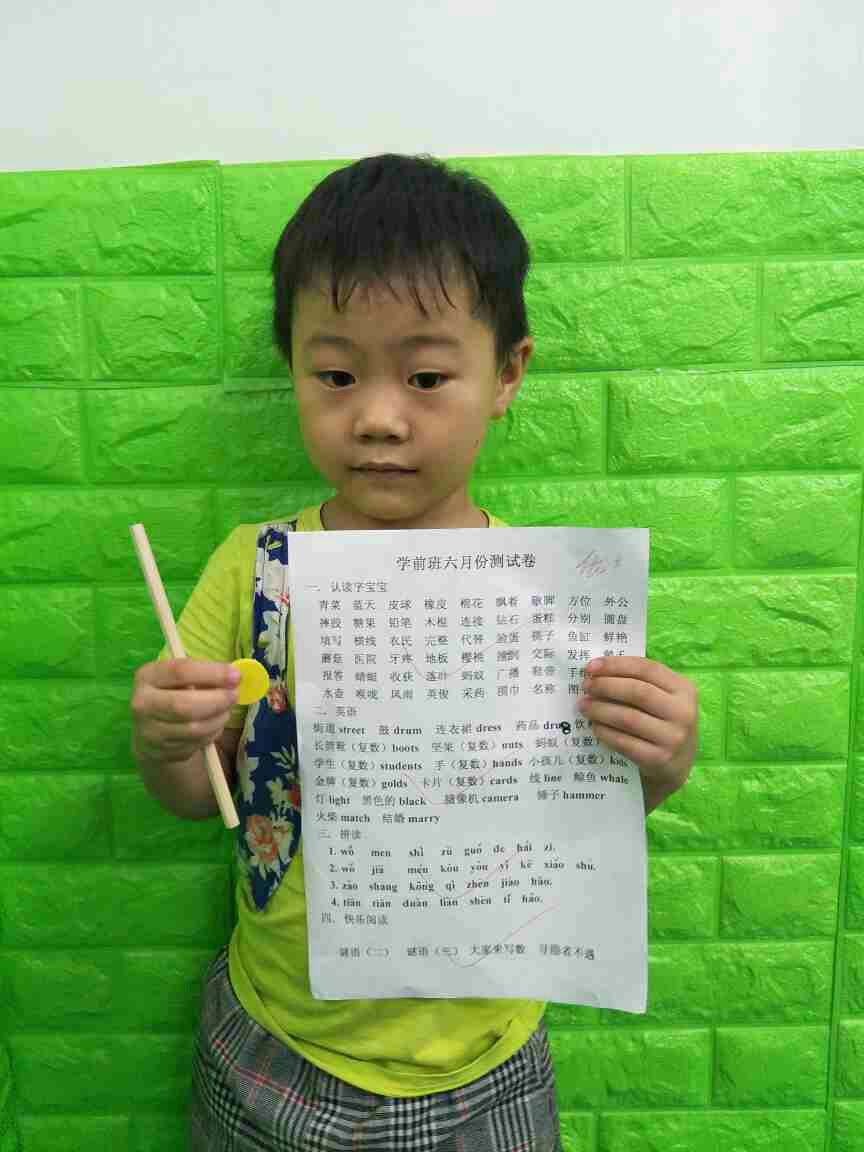 学前班六月份测试卷 优
一. 认读字宝宝
青菜 蓝天 皮球 橡皮 棉花 飘着 歇脚 方位 外公
摔跤 糖果 铅笔 木棍 连接 钻石 蛋糕 分别 圆盘
填写 横线 农民 完整 代替 捡蛋 筷子 鱼缸 鲜艳
蘑菇 医院 牙疼 地板 樱桃 交际 发挥
报答 蜻蜓 收获 落叶 蚂蚁 广播 鞋带
水壶 喉咙 风雨 英俊 采药 围巾 名称
二. 英语
街道 street 鼓 drum 连衣裙 dress 药品
长筒靴（复数）boots 坚果（复数）nuts 蚂蚁（复数）
学生（复数）students 手（复数）hands 小孩儿（复数）kids
金牌（复数）golds 卡片（复数）cards 线 line 鲸鱼 whale
灯 light 黑色的 black 摄像机 camera 锤子 hammer
火柴 match 结婚 marry
三. 拼读
1. wǒ men shì zǔ guó de hái zi.
2. wǒ jiā mén kǒu yǒu yì kē xiǎo shù.
3. zǎo shang kōng qì zhēn jiào hǎo.
4. tiān tiān duàn liàn shēn tǐ hǎo.
四. 快乐阅读
谜语（二） 谜语（三） 大家来写数 寻隐者不遇